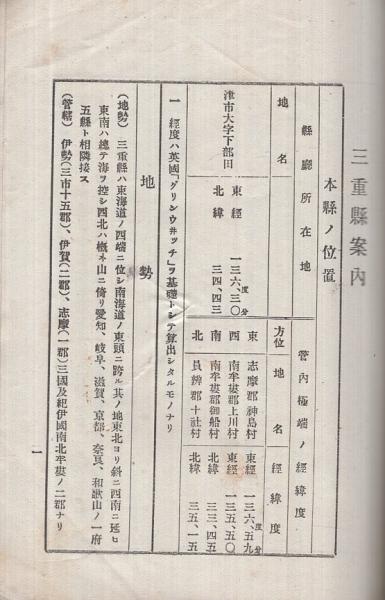 三重縣案內
本縣ノ位置
縣廳所在地
管內極端ノ經緯度
地名
方位
地名
經緯度
津市大字下部田
東經 一三六、三〇 度分
北緯 三四、四三
東 志摩郡神島村 東經 一三六、五九 度分
西 南牟婁郡上川村 東經 一三五、五〇
南 南牟婁郡御船村 北緯 三三、四五
北 員辨郡十社村 北緯 三五、一五
一 經度ハ英國「グリンウ井ッチ」ヲ基礎トシテ算出シタルモノナリ
地勢
(地勢) 三重縣ハ東海道ノ西端ニ位シ南海道ノ東頭ニ跨ル其ノ地東北ヨリ斜ニ西南ニ延ヒ
東南ハ總テ海ヲ控シ西北ハ概ネ山ニ倚リ愛知、岐阜、滋賀、京都、奈良、和歌山ノ一府
五縣ト相隣接ス
(管轄) 伊勢(三市十五郡)、伊賀(二郡)、志摩(一郡)三國及紀伊國南北牟婁ノ二郡ナリ
一